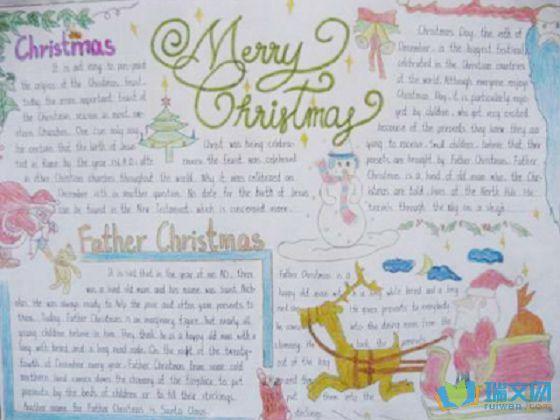 Christmas
It is not easy to pin-point
the origins of the Christmas feast,
today the more important feast of
the Christmas season in most wes-
tern Churches. One can only say
be certain that the birth of Jesus
ted in Rome by the year 336 A.D. afte
r in other Christian churches throughout the world. Why it was celebrated on
December 25th is another question. No date for the birth of Jesus
can be found in the New Testament, which is concerned more
Merry
Christmas
Christ was being celebra-
the feast was celebrated
Christmas Day, the 25th of
December, is the biggest festival
celebrated in the Christian countries
of the world. Although everyone enjoys
Christmas Day, it is particularly enjo-
yed by children, who get very excited
because of the presents they know they are
going to receive. Small children believe that their
presents are brought by Father Christmas. Father
Christmas is a kind of old man who, the Chi-
ldren are told, lives at the North Pole. He
travels through the sky on a sleigh
Father Christmas
It is said that in the year of 300 AD, there
was a kind old man and his name was Saint Nich-
olas. He was always ready to help the poor and often gave presents to
them. Today, Father Christmas is an imaginary figure, but nearly all
young children believe in him. They think he is a happy old man with a
long white beard and a long nose. On the night of the twenty-
fourth of December every year, Father Christmas from some cold
northern land comes down the chimney of the fireplace to put
presents by the beds of children or to fill their stockings.
Another name for Father Christmas is Santa Claus.
Father Christmas is a
happy old man with a long white beard and a long
He gives presents to everybody
he comes into the dining room from the
chimney. He
out of the bag
and
put them into the
stockings.
瑞文网
ruiwen.com